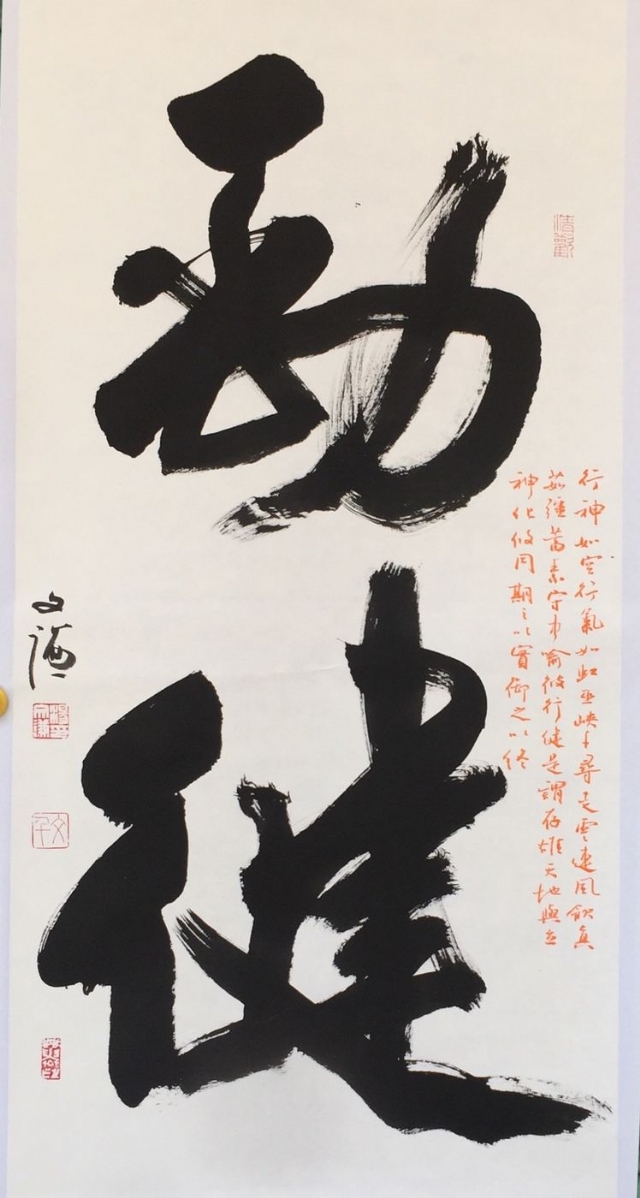 勁健
行神如空行氣如虹巫峽千尋走雲連風飲真
茹強蓄素守中喻彼行健是謂存雄天地與立
神化攸同期之以實御之以終
文謙